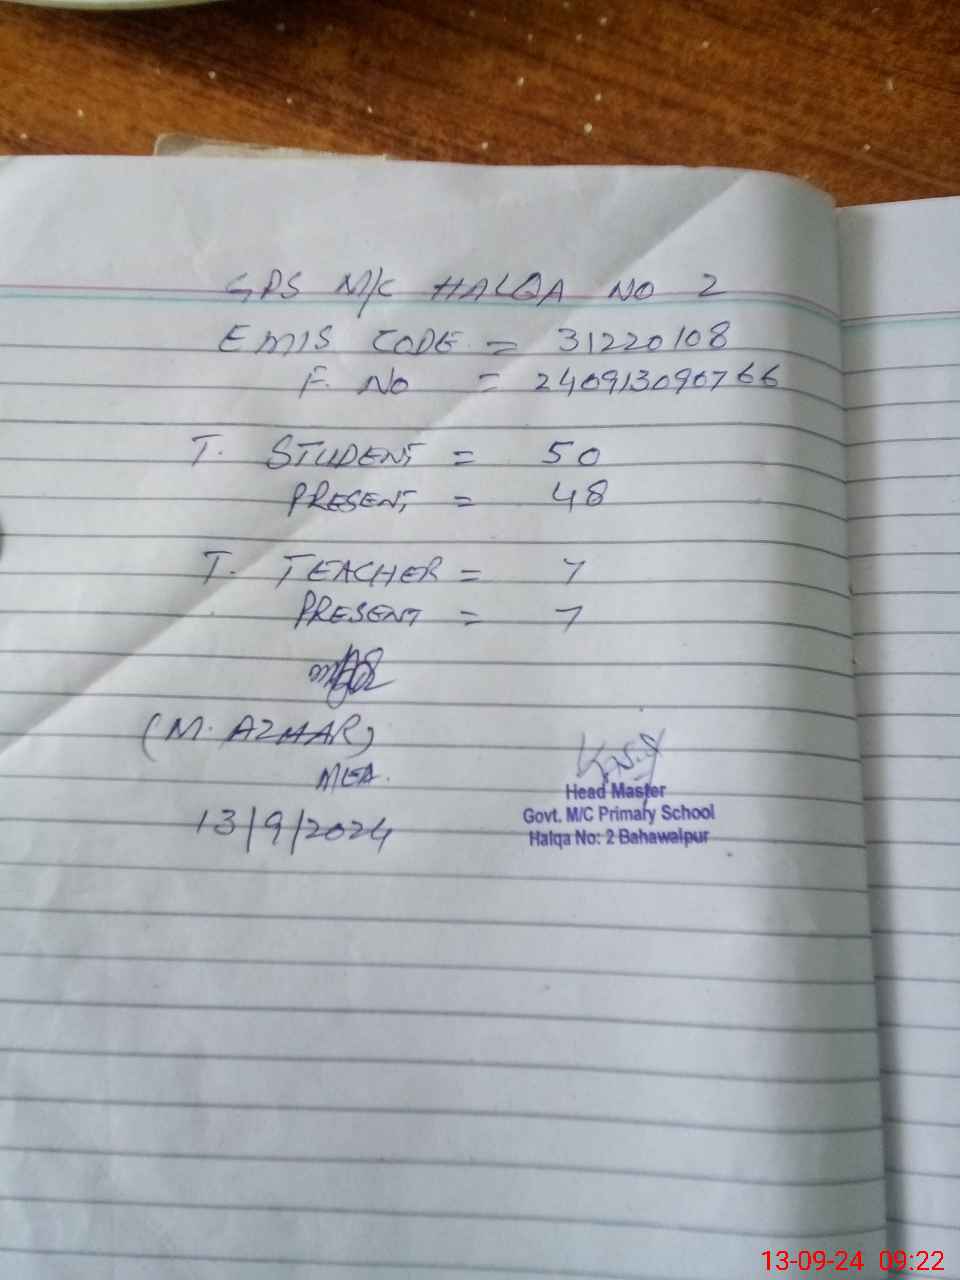 GPS M/C HALQA NO 2
EMIS CODE = 31220108
F. NO = 240913090766
T. STUDENT = 50
PRESENT = 48
T. TEACHER = 7
PRESENT = 7
(M. AZHAR)
MEA.
13/9/2024
Head Master
Govt. M/C Primary School
Halqa No: 2 Bahawalpur
13-09-24 09:22